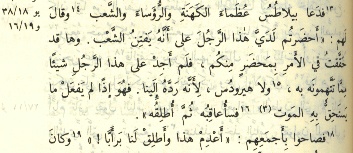 ١٣فدَعا بيلاطُسُ عُظَماءَ الكَهَنَةِ والرُّؤَساءَ والشَّعب ١٤وقالَ
لهم: «أَحضَرتُم لَدَيَّ هٰذا الرَّجُلَ على أَنَّه يَفتِنُ الشَّعْب. وها قد
حَقَّقتُ في الأَمرِ بِمَحضَرٍ مِنكُم، فلَم أَجِدْ على هٰذا الرَّجُلِ شَيئًا
مِمَّا تَتَّهِمونَه بِه، ١٥ولا هيرودُس، لأَنَّه رَدَّه إِلَينا. فهُوَ إِذًا لم يَفعَلْ ما
يَستَحِقُّ بِه المَوت(٣) ١٦فسَأُعاقِبُه ثُمَّ أُطلِقُه».
١٨فصاحوا بِأَجمَعِهم: «أَعْدِمْ هٰذا وأَطلِقْ لَنا بَرأَبَّا!» ١٩وكانَ
يو ٣٨/١٨
و ١٦/١٩